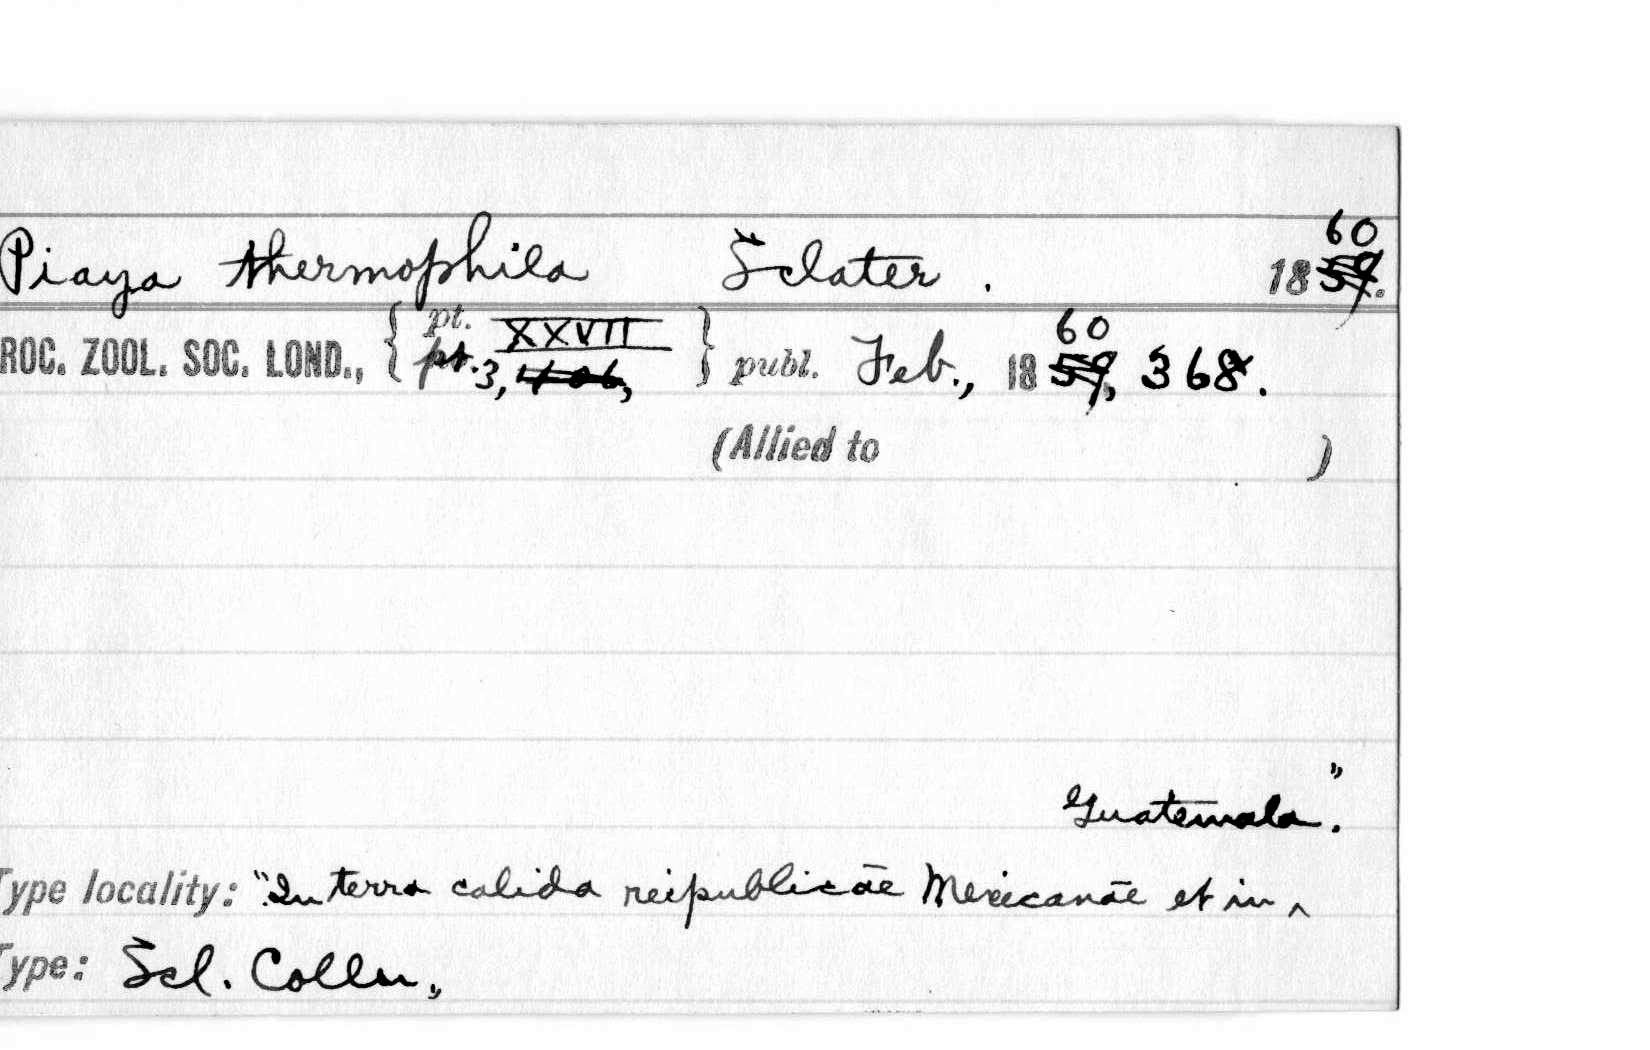 Piaya thermophila Sclater. 1859. 60
ROC. ZOOL. SOC. LOND., { pt. XXVII pt. 3, 406, } publ. Feb., 1859, 60 368.
(Allied to )
Guatemala."
Type locality: "In terra calida reipublicae Mexicanae et in ^
Type: Scl. Colln.,